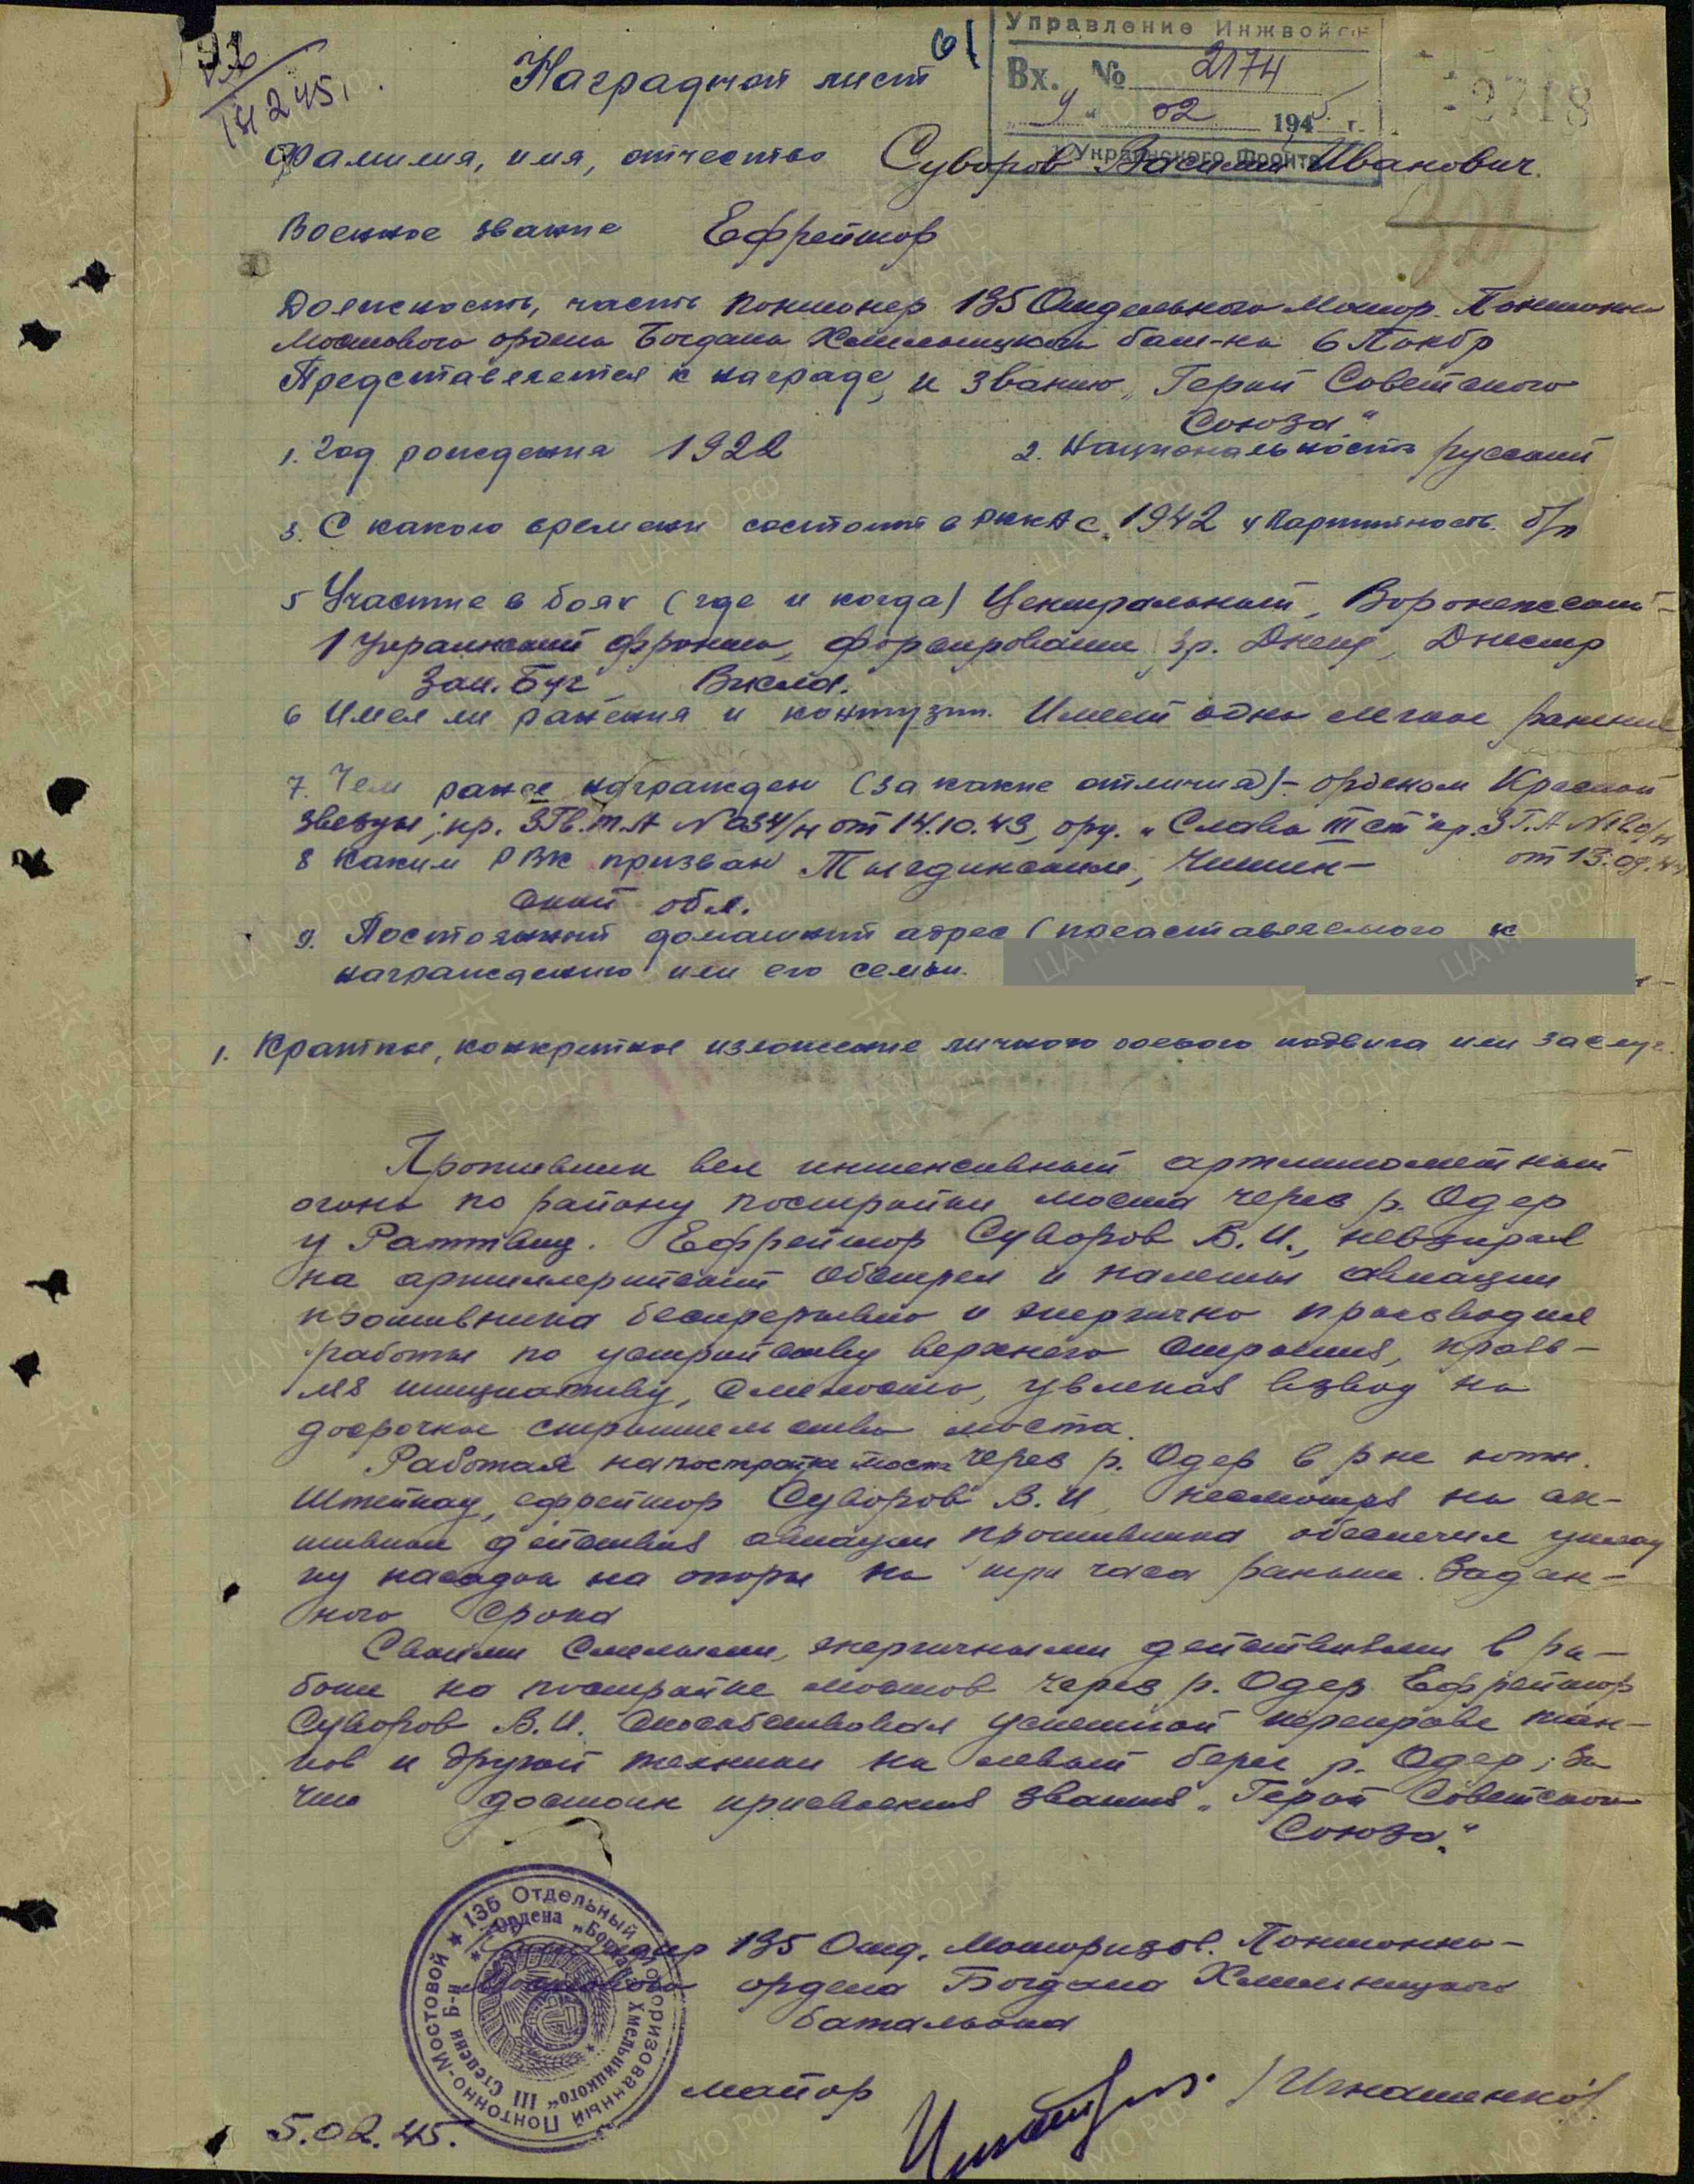 61
Управление Инжвойск
Вх. № 2174
"9" 02 1945 г.
Украинского фронта
14 2 45 г.
Наградной лист
Фамилия, имя, отчество Суворов Василий Иванович.
Военное звание Ефрейтор
Должность, часть понтонер 135 Отдельного Мотор. Понтонно
Мостового ордена Богдана Хмельницкого бат-на 6 Понбр
Представляется к награде, к званию "Герой Советского
Союза"
1. Год рождения 1922 2. Национальность русский
3. С какого времени состоит в РККА с 1942 4 Партийность. б/п
5 Участие в боях (где и когда) Центральный, Воронежский-
1 Украинский фронты, форсирование р. Днепр, Днестр
Зап. Буг, Висла.
6 Имел ли ранения и контузии. Имеет одно легкое ранение
7. Чем ранее награжден (за какие отличия) - орденом Красной
звезды; пр. 3Гв.Т.А N 034/н от 14.10.43, орд. "Слава III ст" пр. 3Г.А №120/н
от 13.09.44
8 Каким РВК призван Тыгдинским, Читин-
ской обл.
9. Постоянный домашний адрес (представляемого к
награждению или его семьи.
1. Краткое, конкретное изложение личного боевого подвига или заслуг.
Противник вел интенсивный артминометный
огонь по району постройки моста через р. Одер
у Раттвиц. Ефрейтор Суворов В.И., невзирая
на артиллерийский обстрел и налеты авиации
противника беспрерывно и энергично производил
работы по устройству верхнего строения, прояв-
ляя инициативу, смелость, увлекая взвод на
досрочное строительство моста.
Работая на постройке моста через р. Одер в р-не южн.
Штейнау, ефрейтор Суворов В.И, несмотря на ак-
тивные действия авиации противника обеспечил уклад
ку насадок на опоры на три часа раньше. Задан-
ного срока
Своими смелыми, энергичными действиями в ра-
боте на постройке мостов через р. Одер Ефрейтор
Суворов В.И. способствовал успешной переправе тан-
ков и другой техники на левый берег р. Одер; за
что достоин присвоения звания "Герой Советского
Союза."
Командир 135 Отд. Моторизов. Понтонно-
Мостового ордена Богдана Хмельницкого
батальона
майор /Игнатенко/
135 Отдельный Моторизованный Понтонно-Мостовой
Ордена "Богдана Хмельницкого" III Степени Б-н
5.02.45.